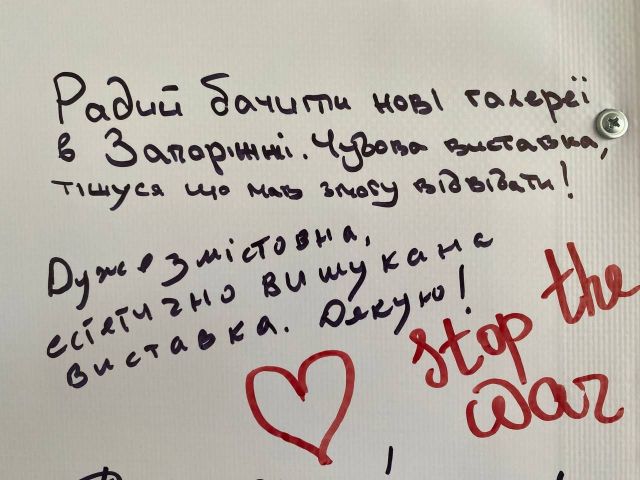 Радий бачити нові галереї
в Запоріжжі. Чудова виставка,
тішуся що мав змогу відвідати!
Дуже змістовна,
естетично вишукана
виставка. Дякую!
Stop the
war